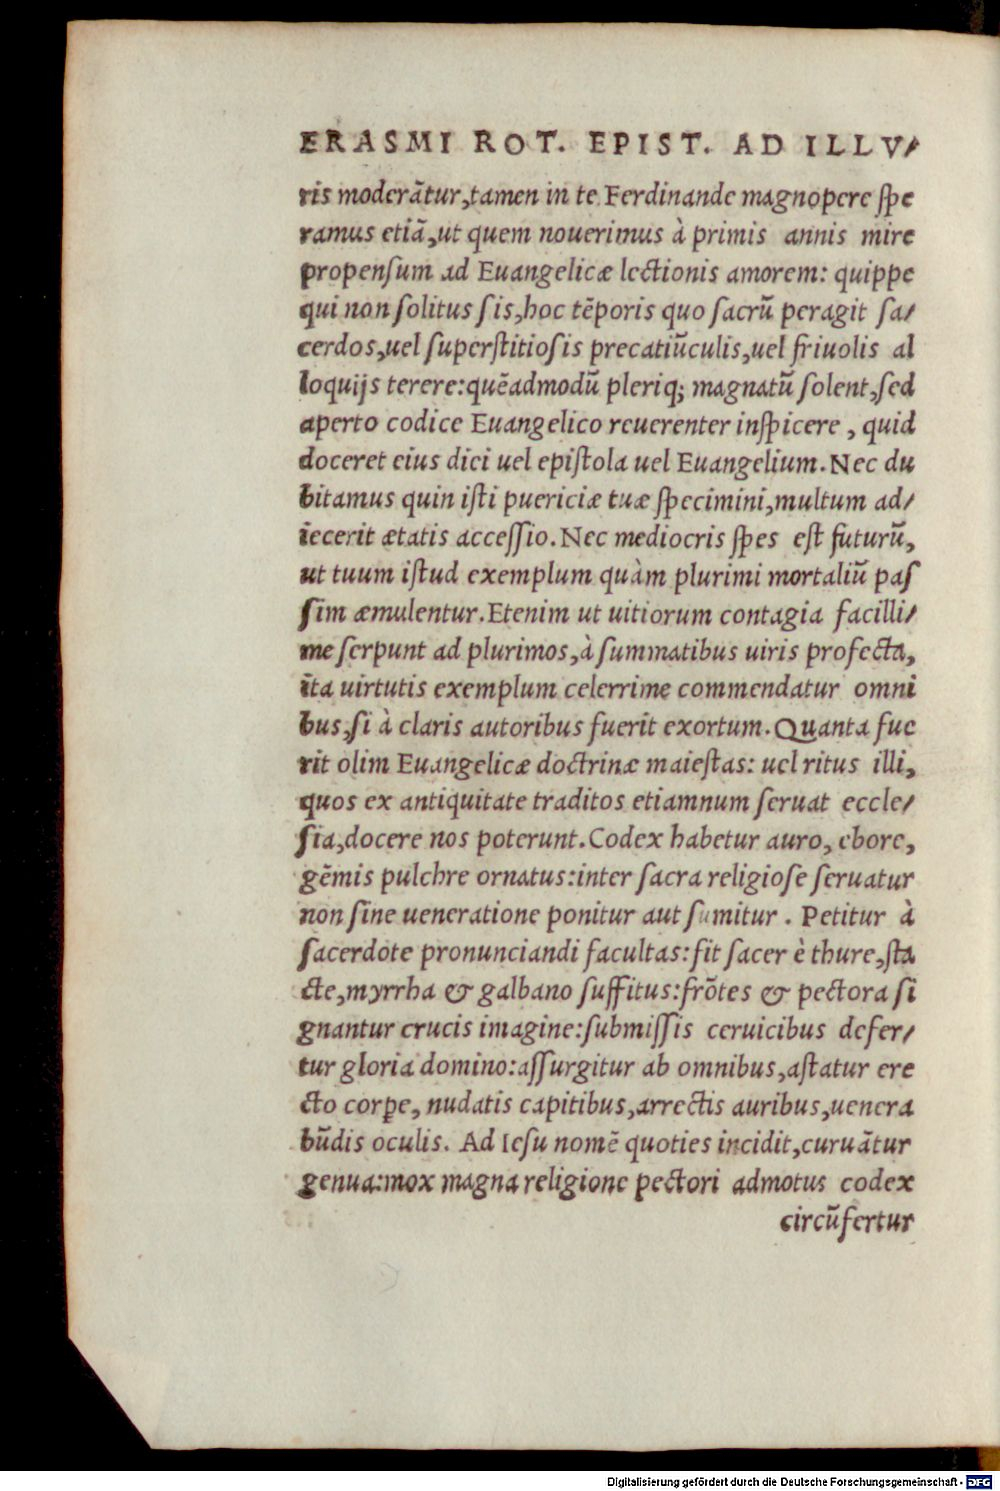 ERASMI ROT. EPIST. AD ILLV⸗
ris moderãtur,tamen in te Ferdinande magnopere ſpe
ramus etiã,ut quem nouerimus à primis annis mire
propenſum ad Euangelicæ lectionis amorem: quippe
qui non ſolitus ſis,hoc tẽporis quo ſacrũ peragit ſa⸗
cerdos,uel ſuperſtitioſis precatiũculis,uel friuolis al
loquijs terere:quẽadmodũ pleriq; magnatũ ſolent,ſed
aperto codice Euangelico reuerenter inſpicere , quid
doceret eius diei uel epiſtola uel Euangelium.Nec du
bitamus quin iſti puericiæ tuæ ſpecimini,multum ad⸗
iecerit ætatis acceſſio.Nec mediocris ſpes eſt futurũ,
ut tuum iſtud exemplum quàm plurimi mortaliũ paſ
ſim æmulentur.Etenim ut uitiorum contagia facilli⸗
me ſerpunt ad plurimos,à ſummatibus uiris profecta,
ita uirtutis exemplum celerrime commendatur omni
bus,ſi à claris autoribus fuerit exortum.Quanta fue
rit olim Euangelicæ doctrinæ maieſtas: uel ritus illi,
quos ex antiquitate traditos etiamnum ſeruat eccle⸗
ſia,docere nos poterunt.Codex habetur auro, ebore,
gẽmis pulchre ornatus:inter ſacra religioſe ſeruatur
non ſine ueneratione ponitur aut ſumitur . Petitur à
ſacerdote pronunciandi facultas:fit ſacer è thure,ſta
cte,myrrha & galbano ſuffitus:frõtes & pectora ſi
gnantur crucis imagine:ſubmiſſis ceruicibus defer⸗
tur gloria domino:aſſurgitur ab omnibus,aſtatur ere
cto corꝑe, nudatis capitibus,arrectis auribus,uenera
bũdis oculis. Ad Ieſu nomẽ quoties incidit,curuãtur
genua:mox magna religione pectori admotus codex
circũfertur
Digitalisierung gefördert durch die Deutsche Forschungsgemeinschaft - DFG